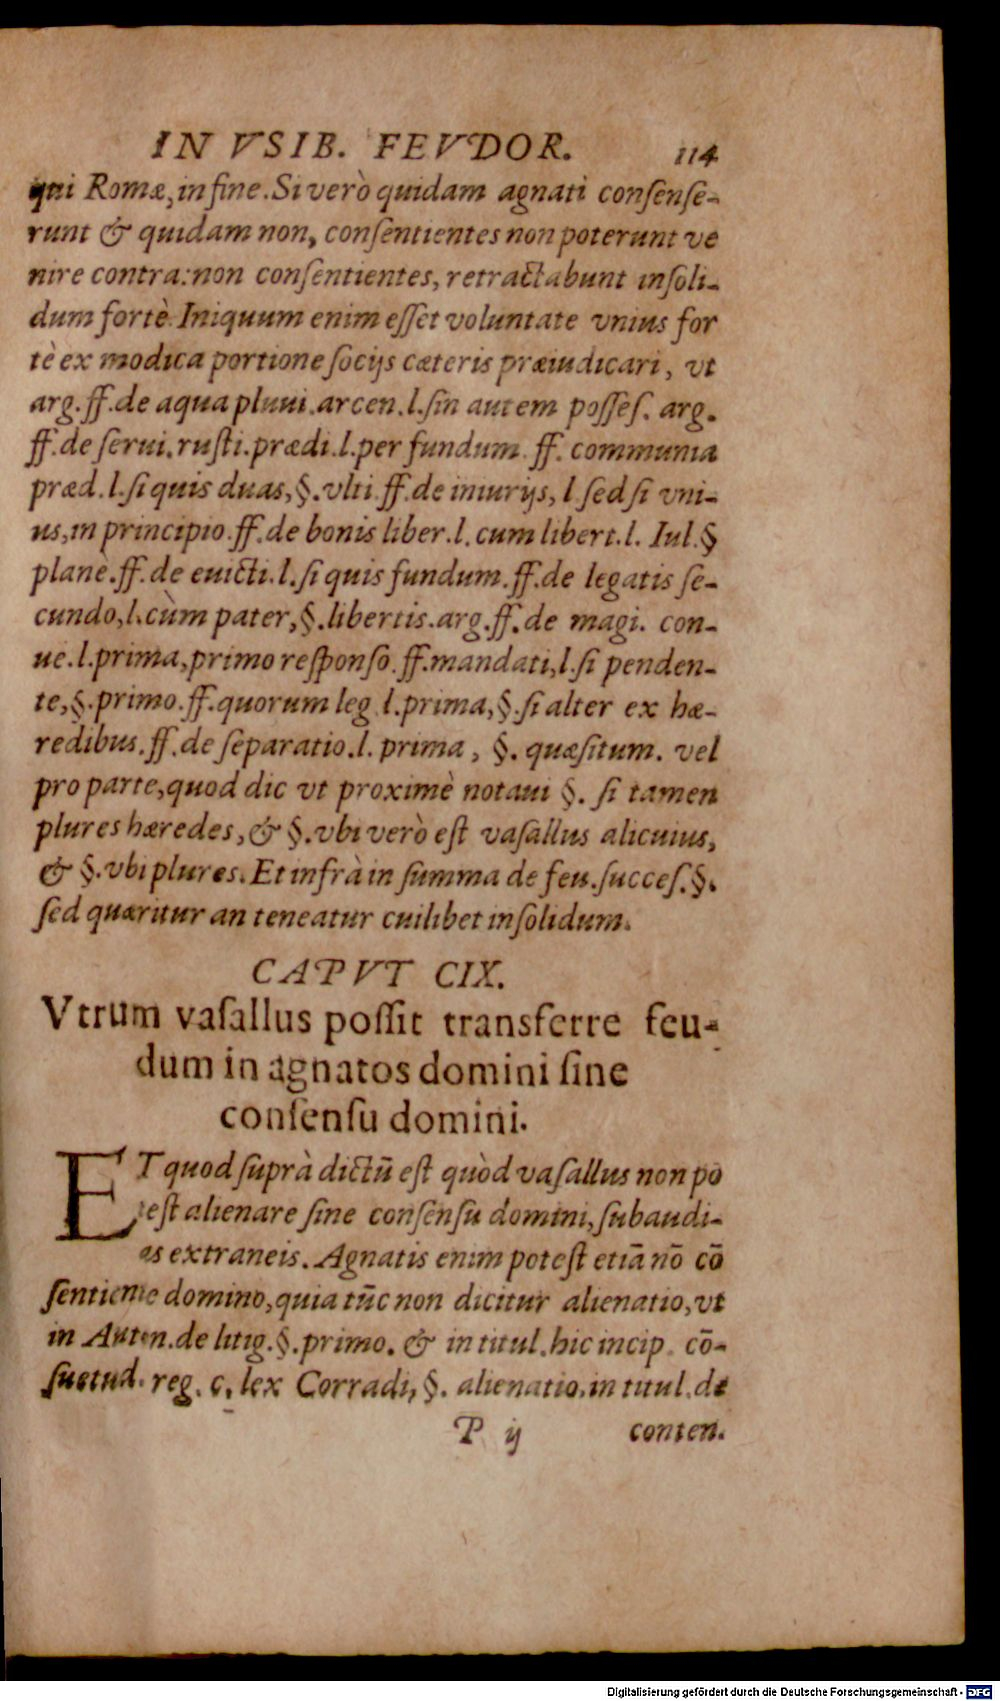 IN VSIB. FEVDOR. 114
qui Romæ, in fine. Si verò quidam agnati conſenſe-
runt & quidam non, conſentientes non poterunt ve
nire contra: non conſentientes, retractabunt inſoli-
dum fortè. Iniquum enim eſſet voluntate vnius for
tè ex modica portione ſocijs cæteris præiudicari, vt
arg. ff. de aqua pluui. arcen. l. ſin autem poſſeſ. arg.
ff. de ſerui. ruſti. prædi. l. per fundum. ff. communia
præd. l. ſi quis duas, §. vlti. ff. de iniurijs, l. ſed ſi vni-
us, in principio. ff. de bonis liber. l. cum libert. l. Iul. §
planè. ff. de euicti. l. ſi quis fundum. ff. de legatis ſe-
cundo, l. cùm pater, §. libertis. arg. ff. de magi. con-
ue. l. prima, primo reſponſo. ff. mandati, l. ſi penden-
te, §. primo. ff. quorum leg. l. prima, §. ſi alter ex hæ-
redibus. ff. de ſeparatio. l. prima, §. quæſitum. vel
pro parte, quod dic vt proximè notaui §. ſi tamen
plures hæredes, & §. vbi verò eſt vaſallus alicuius,
& §. vbi plures. Et infrà in ſumma de feu. ſucceſ. §.
ſed quæritur an teneatur cuilibet inſolidum.
CAPVT CIX.
Vtrum vaſallus poſſit transferre feu-
dum in agnatos domini ſine
conſenſu domini.
ET quod ſuprà dictū eſt quòd vaſallus non po
teſt alienare ſine conſenſu domini, ſubaudi-
as extraneis. Agnatis enim poteſt etiā nō cō
ſentiente domino, quia tūc non dicitur alienatio, vt
in Auten. de litig. §. primo. & in titul. hic incip. cō-
ſuetud. reg. c. lex Corradi, §. alienatio. in titul. de
P ij conten.
Digitalisierung gefördert durch die Deutsche Forschungsgemeinschaft - DFG